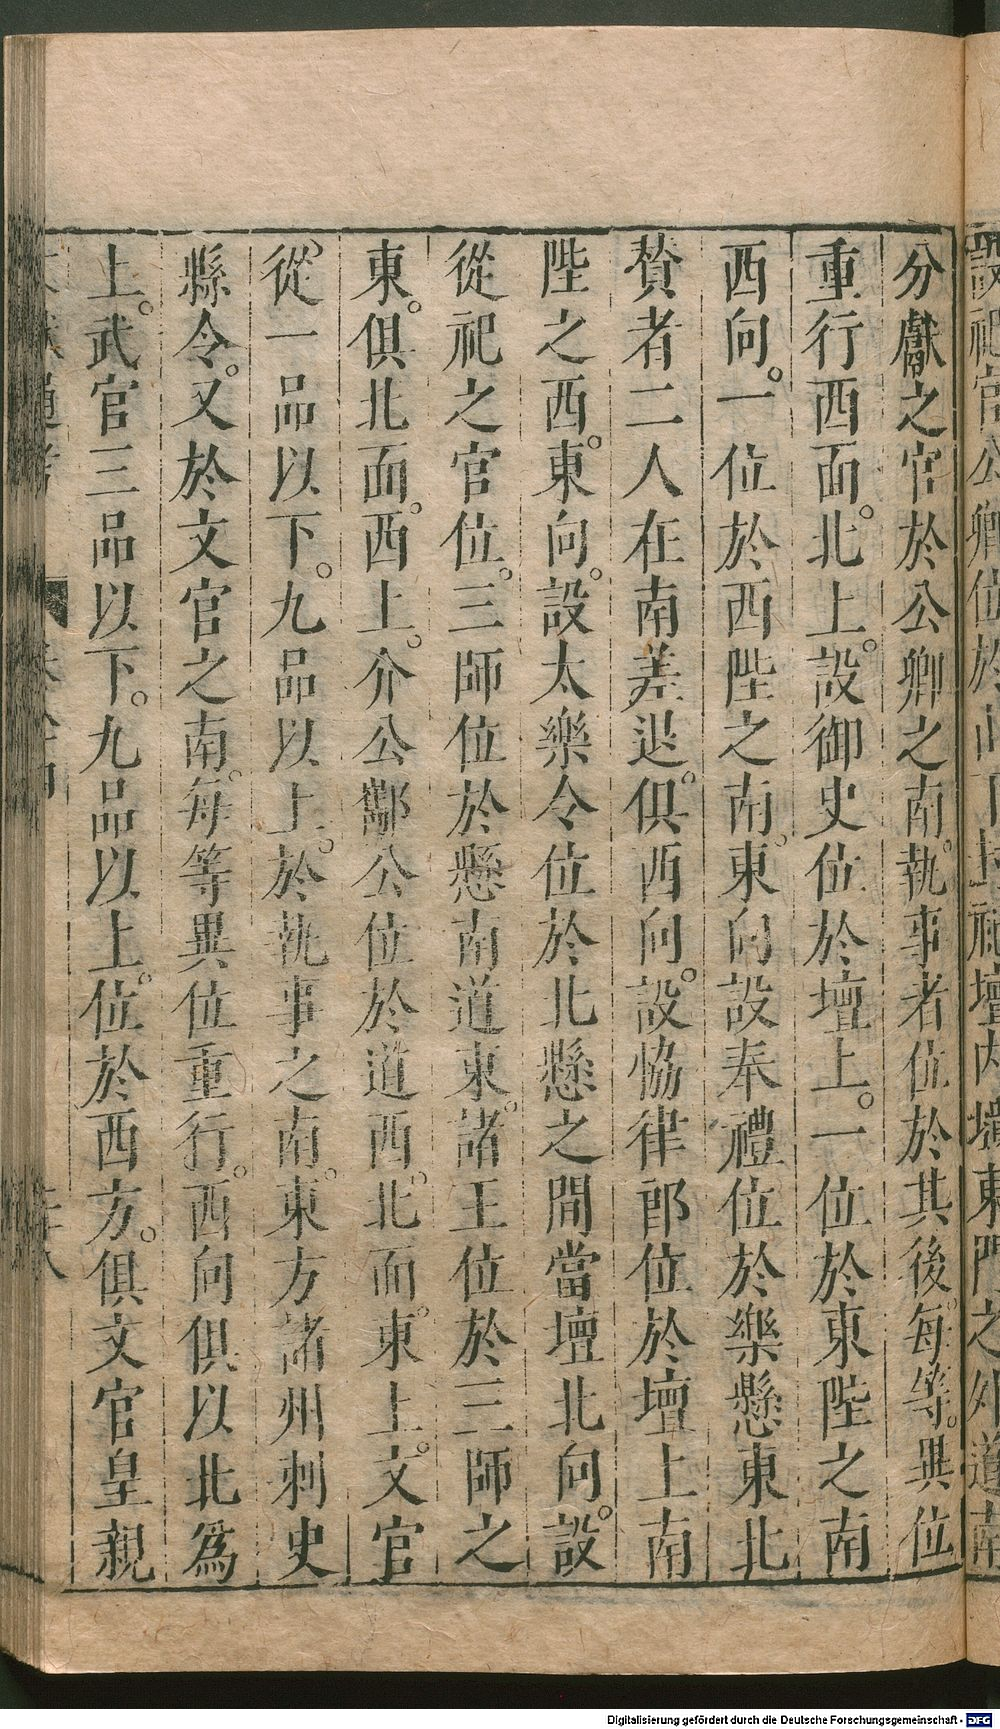 分獻之官於公卿之南。執事者位於其後。每等。異位
重行西面。北上。設御史位於壇上。一位於東陛之南
西向。一位於西陛之南。東向設奉禮位於樂懸東北
贊者二人在南差退。俱西向。設恊律郎位於壇上南
陛之西。東向。設太樂令位於北懸之間當壇北向。設
從祀之官位。三師位於懸南道東。諸王位於三師之
東。俱北面。西上。介公酅公位於道西。北面。東上。文官
從一品以下。九品以上。於執事之南。東方諸州刺史
縣令。又於文官之南。每等異位重行。西向俱以北爲
上。武官三品以下。九品以上。位於西方。俱文官皇親
Digitalisierung gefördert durch die Deutsche Forschungsgemeinschaft - DFG